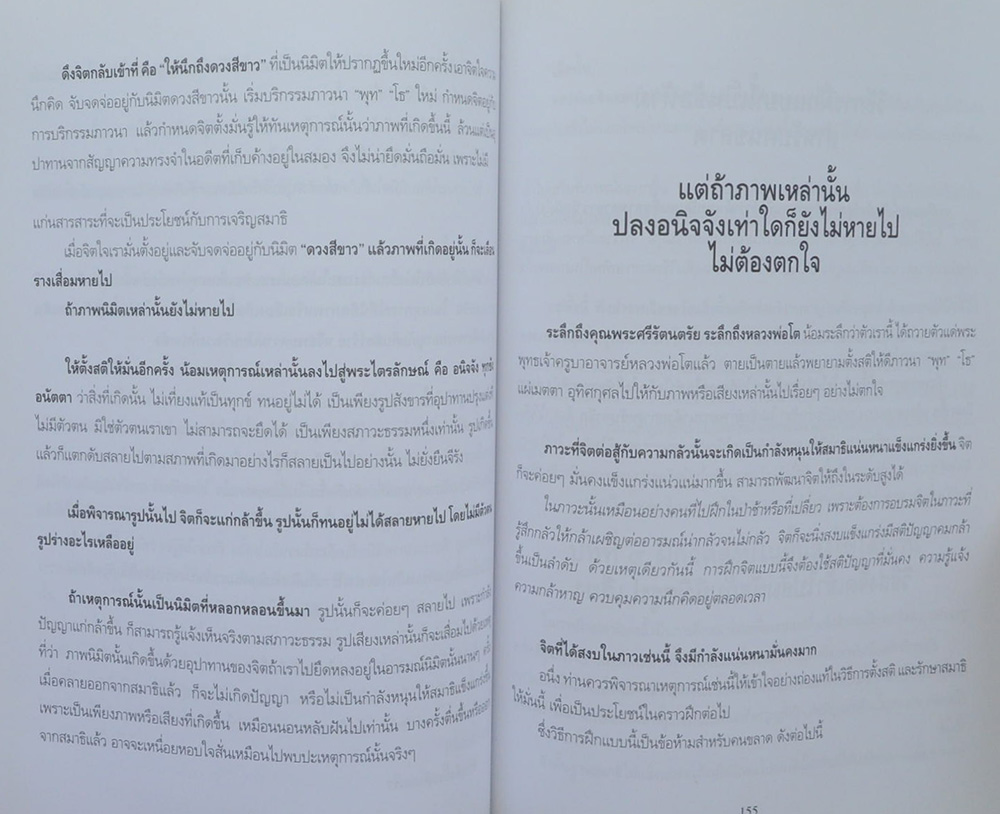 ดึงจิตกลับเข้าที่ คือ "ให้นึกถึงดวงสีขาว" ที่เป็นนิมิตให้ปรากฏขึ้นใหม่อีกครั้ง เอาจิตใจความ
นึกคิด จับจดจ่ออยู่กับนิมิตดวงสีขาวนั้น เริ่มบริกรรมภาวนา "พุท" "โธ" ใหม่ กำหนดจิตอยู่กับ
การบริกรรมภาวนา แล้วกำหนดจิตตั้งมั่นรู้ให้ทันเหตุการณ์นั้นว่าภาพที่เกิดขึ้นนี้
ปาทานจากสัญญาความทรงจำในอดีตที่เก็บค้างอยู่ในสมอง จึงไม่น่ายึดมั่นถือมั่น เพราะไม่มี
แก่นสารสาระที่จะเป็นประโยชน์กับการเจริญสมาธิ
เมื่อจิตใจเรามั่นตั้งอยู่และจับจดจ่ออยู่กับนิมิต "ดวงสีขาว" แล้วภาพที่เกิดอยู่นั้น
รางเสื่อมหายไป
ถ้าภาพนิมิตเหล่านั้นยังไม่หายไป
ให้ตั้งสติให้มั่นอีกครั้ง น้อมเหตุการณ์เหล่านั้นลงไปสู่พระไตรลักษณ์ คือ อนิจจัง ทุกขัง
อนัตตา ว่าสิ่งที่เกิดนั้น ไม่เที่ยงแท้เป็นทุกข์ ทนอยู่ไม่ได้ เป็นเพียงรูปสังขารที่อุปาทาน
ไม่มีตัวตน มิใช่ตัวตนเราเขา ไม่สามารถจะยึดได้ เป็นเพียงสภาวะธรรมหนึ่งเท่านั้น
แล้วก็แตกดับสลายไปตามสภาพที่เกิดมาอย่างไรก็สลายเป็นไปอย่างนั้น ไม่ยั่งยืนจีรัง
เมื่อพิจารณารูปนั้นไป จิตก็จะแก่กล้าขึ้น รูปนั้นก็ทนอยู่ไม่ได้สลายหายไป โดยไม่มีตัวตน
รูปร่างอะไรเหลืออยู่
ถ้าเหตุการณ์นั้นเป็นนิมิตที่หลอกหลอนขึ้นมา รูปนั้นก็จะค่อยๆ สลายไป
ปัญญาแก่กล้าขึ้น ก็สามารถรู้แจ้งเห็นจริงตามสภาวะธรรม รูปเสียงเหล่านั้นก็จะเสื่อมไปด้วยเหตุ
ที่ว่า ภาพนิมิตนั้นเกิดขึ้นด้วยอุปาทานของจิตถ้าเราไปยึดหลงอยู่ในอารมณ์นิมิตนั้นนานๆ
เมื่อคลายออกจากสมาธิแล้ว ก็จะไม่เกิดปัญญา หรือไม่เป็นกำลังหนุนให้สมาธิแข็งแกร่งขึ้น
เพราะเป็นเพียงภาพหรือเสียงที่เกิดขึ้น เหมือนนอนหลับฝันไปเท่านั้น บางครั้งตื่นขึ้น
จากสมาธิแล้ว อาจจะเหนื่อยหอบใจสั่นเหมือนไปพบปะเหตุการณ์นั้นจริงๆ
แต่ถ้าภาพเหล่านั้น
ปลงอนิจจังเท่าใดก็ยังไม่หายไป
ไม่ต้องตกใจ
ระลึกถึงคุณพระศรีรัตนตรัย ระลึกถึงหลวงพ่อโต น้อมระลึกว่าตัวเรานี้ ได้ถวายตัวแด่พระ
พุทธเจ้าครูบาอาจารย์หลวงพ่อโตแล้ว ตายเป็นตายแล้วพยายามตั้งสติให้ดีภาวนา "พุท" "โธ"
แผ่เมตตา อุทิศกุศลไปให้กับภาพหรือเสียงเหล่านั้นไปเรื่อยๆ อย่างไม่ตกใจ
ภาวะที่จิตต่อสู้กับความกลัวนั้นจะเกิดเป็นกำลังหนุนให้สมาธิแน่นหนาแข็งแกร่งยิ่งขึ้น จิต
ก็จะค่อยๆ มั่นคงแข็งแกร่งแน่วแน่มากขึ้น สามารถพัฒนาจิตให้ถึงในระดับสูงได้
ในภาวะนั้นเหมือนอย่างคนที่ไปฝึกในป่าช้าหรือที่เปลี่ยว เพราะต้องการอบรมจิตในภาวะที่
รู้สึกกลัวให้กล้าเผชิญต่ออารมณ์น่ากลัวจนไม่กลัว จิตก็จะนิ่งสงบแข็งแกร่งมีสติปัญญาคมกล้า
ขึ้นเป็นลำดับ ด้วยเหตุเดียวกันนี้ การฝึกจิตแบบนี้จึงต้องใช้สติปัญญาที่มั่นคง ความรู้แจ้ง
ความกล้าหาญ ควบคุมความนึกคิดอยู่ตลอดเวลา
จิตที่ได้สงบในภาวะเช่นนี้ จึงมีกำลังแน่นหนามั่นคงมาก
อนึ่ง ท่านควรพิจารณาเหตุการณ์เช่นนี้ให้เข้าใจอย่างถ่องแท้ในวิธีการตั้งสติ และรักษาสมาธิ
ให้มั่นนี้ เพื่อเป็นประโยชน์ในคราวฝึกต่อไป
ซึ่งวิธีการฝึกแบบนี้เป็นข้อห้ามสำหรับคนขลาด ดังต่อไปนี้
155